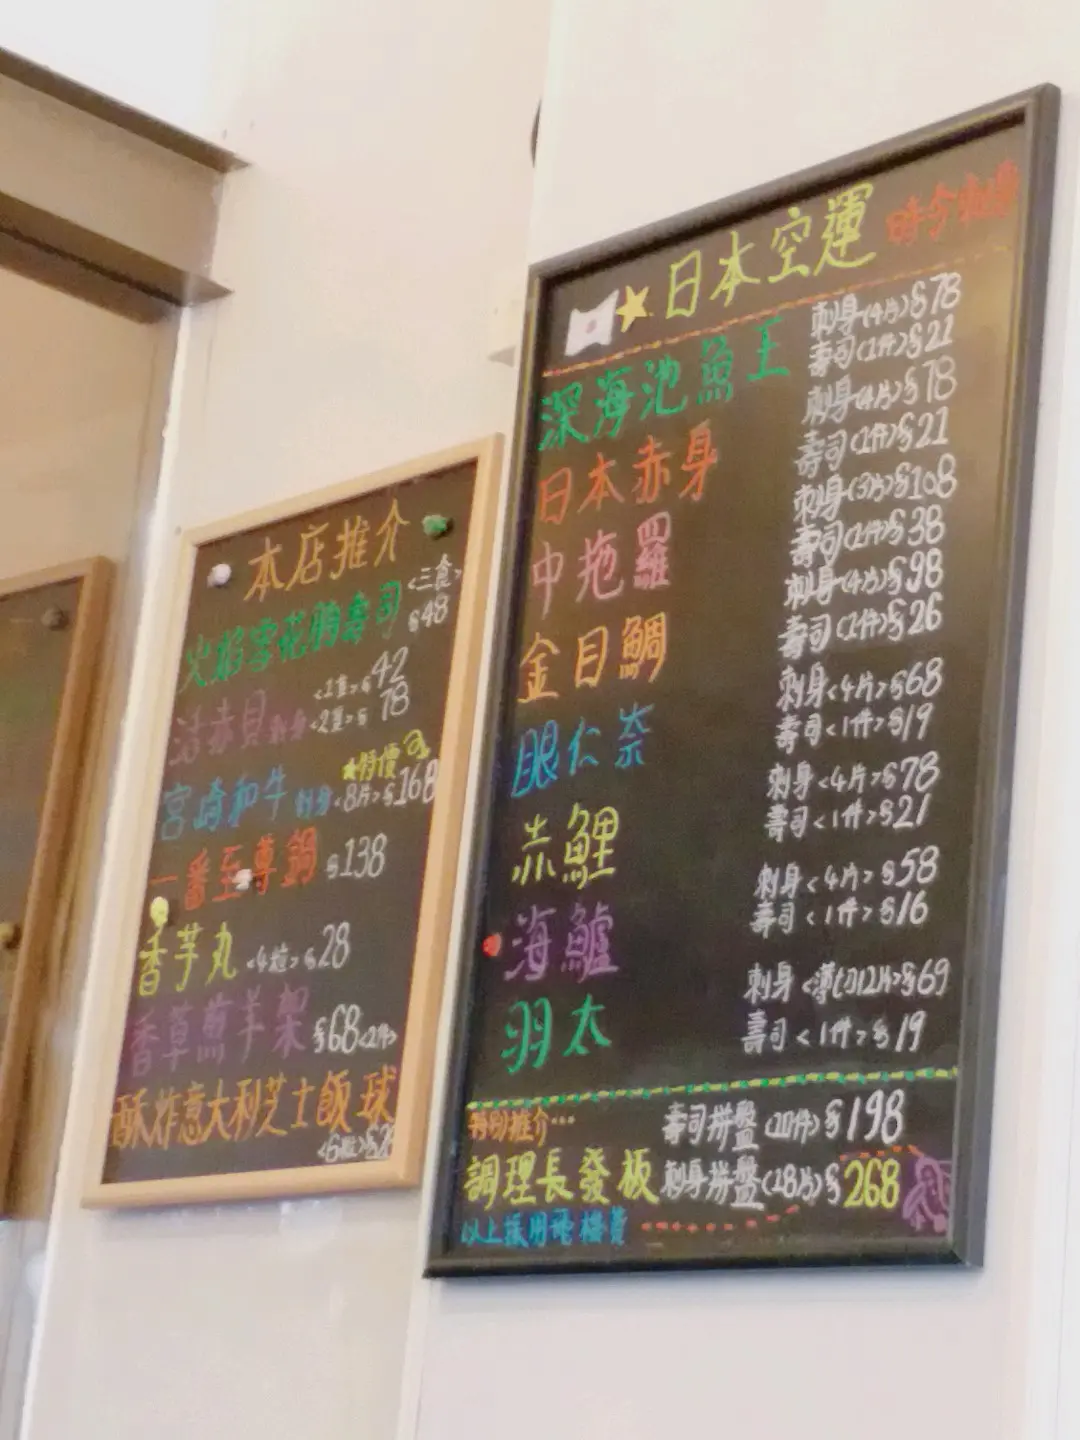 本店推介
火焰雪花肉壽司 <三食> $48
活赤貝刺身 <1隻> $42
<2隻> $78
★特價
宮崎和牛 刺身 <8片> $168
一番至尊鍋 $138
香芋丸 <4粒> $28
香草煎羊架 $68 <2件>
酥炸意大利芝士飯球
<6粒>
★日本空運 時令
深海池魚王 刺身(4片)$78
壽司(1件)$21
日本赤身 刺身(4片)$78
壽司(1件)$21
中拖羅 刺身(3片)$108
壽司(1件)$38
金目鯛 刺身(4片)$98
壽司(1件)$26
眼仁奈 刺身<4片>$68
壽司<1件>$19
赤鯉 刺身<4片>$78
壽司<1件>$21
海鱸 刺身<4片>$58
壽司<1件>$16
羽太 刺身<薄切12片>$69
壽司<1件>$19
特別推介… 壽司拼盤(10件)$198
調理長發板 刺身拼盤(18片)$268
以上採用